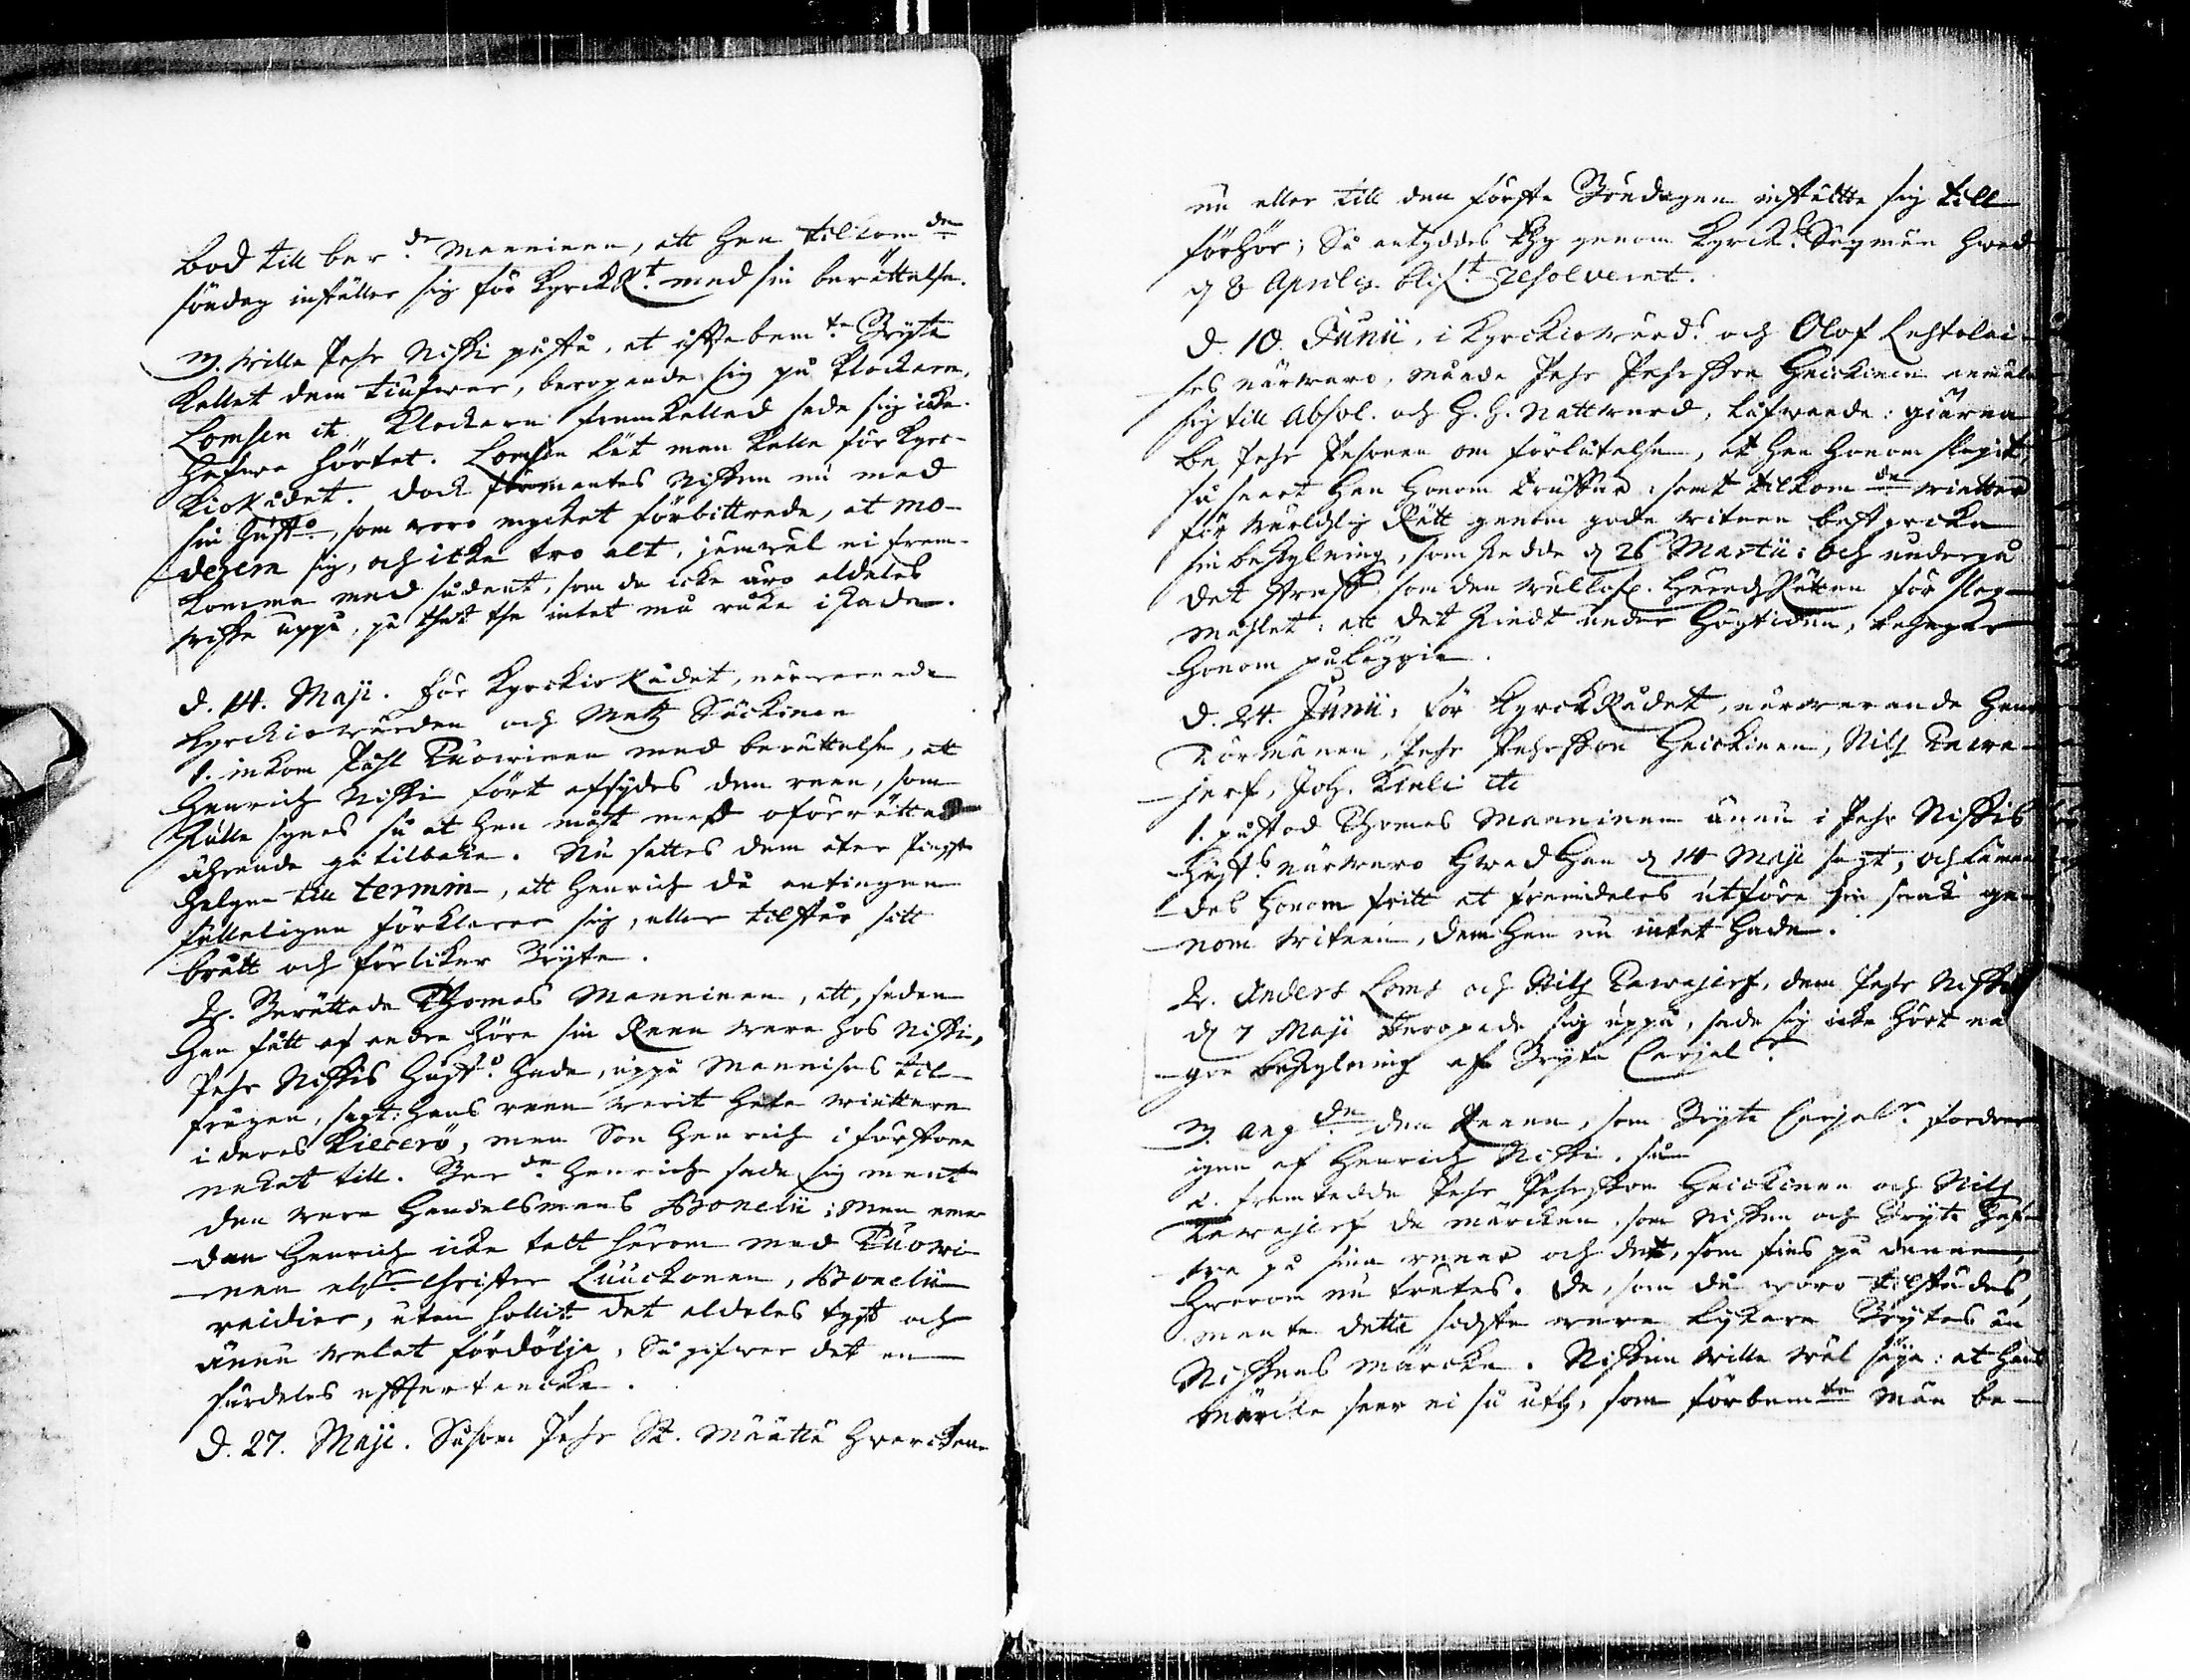 bod till ber:de Manninen, att han tilkom:de
söndag inställer sig för KyrckR:t med sin berättelse.
3. wille Pehr Niski påstå, at offtabem:te Bryta
kallat dem tiufwar, beropande sig på Klockaren,
Lomsen etc. Klockaren framkallad sade sig icke
hafwa hördt. Lomsen lät man kalla för Kyrc-
kioRådet. Dock förmantes Nisken nu med
sin hust:o, som woro mycket förbittrade, at mo-
derera sig, och icke tro alt, jemwäl ei fram-
komma med sådant, som de icke äro aldeles
wisse uppå, på thet the intet må råka i skada.
d. 14. Maji. För KyrckioRådet, närwarande
Kyrckiowärden och Matz Säckinen
1. inkom Påhl Tuowinen med berättelse, att
Henrich Niski fört afsydes den reen, som
skulle synas så at han måst med oförrättad
ährende gå tilbaka. Nu sattes dem åter Pingst
helgen till termin, att Henrich då antingen
fulleligen förklarar sig, eller tilstår sitt
brått och förliker Bryta.
2. Berättade Thomas Manninen, att, sedan
han fått af andra höra sin Reen wara hos Niski,
Pehr Niskis hust:o hade, uppå Mannises til-
frågan, sagt: hans reen warit hela wintern
i deras Kiecerö, men Son Henrich i förstone
nekat till. Ber:de Henrich sade sig ment
den wara Handelsmans Bonelii; Men eme-
dan Henrich icke talt härom med Tuowi-
nen els:r Christer Luuckonen, Bonelii
reidier, utan hollit det aldeles tyst och
ännu welat fördölja, Så gifwer det en
särdeles efftertancka.
d. 27. Maji. Såsom Pehr St. Määttä hwarcken
nu eller till den förste Böndagen instälte sig till
förhör; Så antyddes thy genom Kyrck. Sexmän hwad
d 8 Aprilis blif:t resolverat.
d. 10. Junii, i Kyrckiowärd:s och Olof Lehtolai-
ses närwaro, månde Pehr Pehrsson Heickinen anmäla
sig till Absol. och H. H. Nattward, låfwande: giärna
be Pehr Pesonen om förlåtelse, at han honom slagit,
så snart han honom träffar, samt tilkom:de wintter
för Wärldslig Rätt genom goda witnen bestyrcka
sin beskylning, som skedde d 26 Martii: och undergå
det straff, som den wällofl. HäradzRätten för slag-
måhlet, att det skiedt under högtiden, behagar
honom påläggia.
d. 24. Junii, för KyrckRådet, närwarande Hen:
Tormänen, Pehr Pehrsson Heickinen, Nils Tawa-
jerf, Joh. Kinli etc
1. påstod Thomas Manninen ännu i Pehr Niskis
hust:s närwaro hwad han d 14 Maji sagt, och lämna-
des honom fritt at framdeles utföra sin sak ge-
nom witnen, dem han nu intet hade.
2. Anders Loms och Nils Tawajerf, dem Pehr Niski
d 7 Maji beropade sig uppå, sade sig icke hört nå-
gon beskylning af Bryta Carjal:r
3. ang:de den Reenen, som Bryta Carjal:r fordrar
igen af Henrich Niski. så
a. framtedde Pehr Pehrsson Heickinen och Nils
Tawajerf de märcken, som Nisken och Bryta haf-
wa på sina renar och det, som fins på denne,
hwarom nu trätes. De, som då woro tilstädes,
mente detta sidsta wara lykare Brytas än
Niskens märcke. Nisken wille wäl säya: at hans
märcke seer ei så uth, som förbem:te män be-